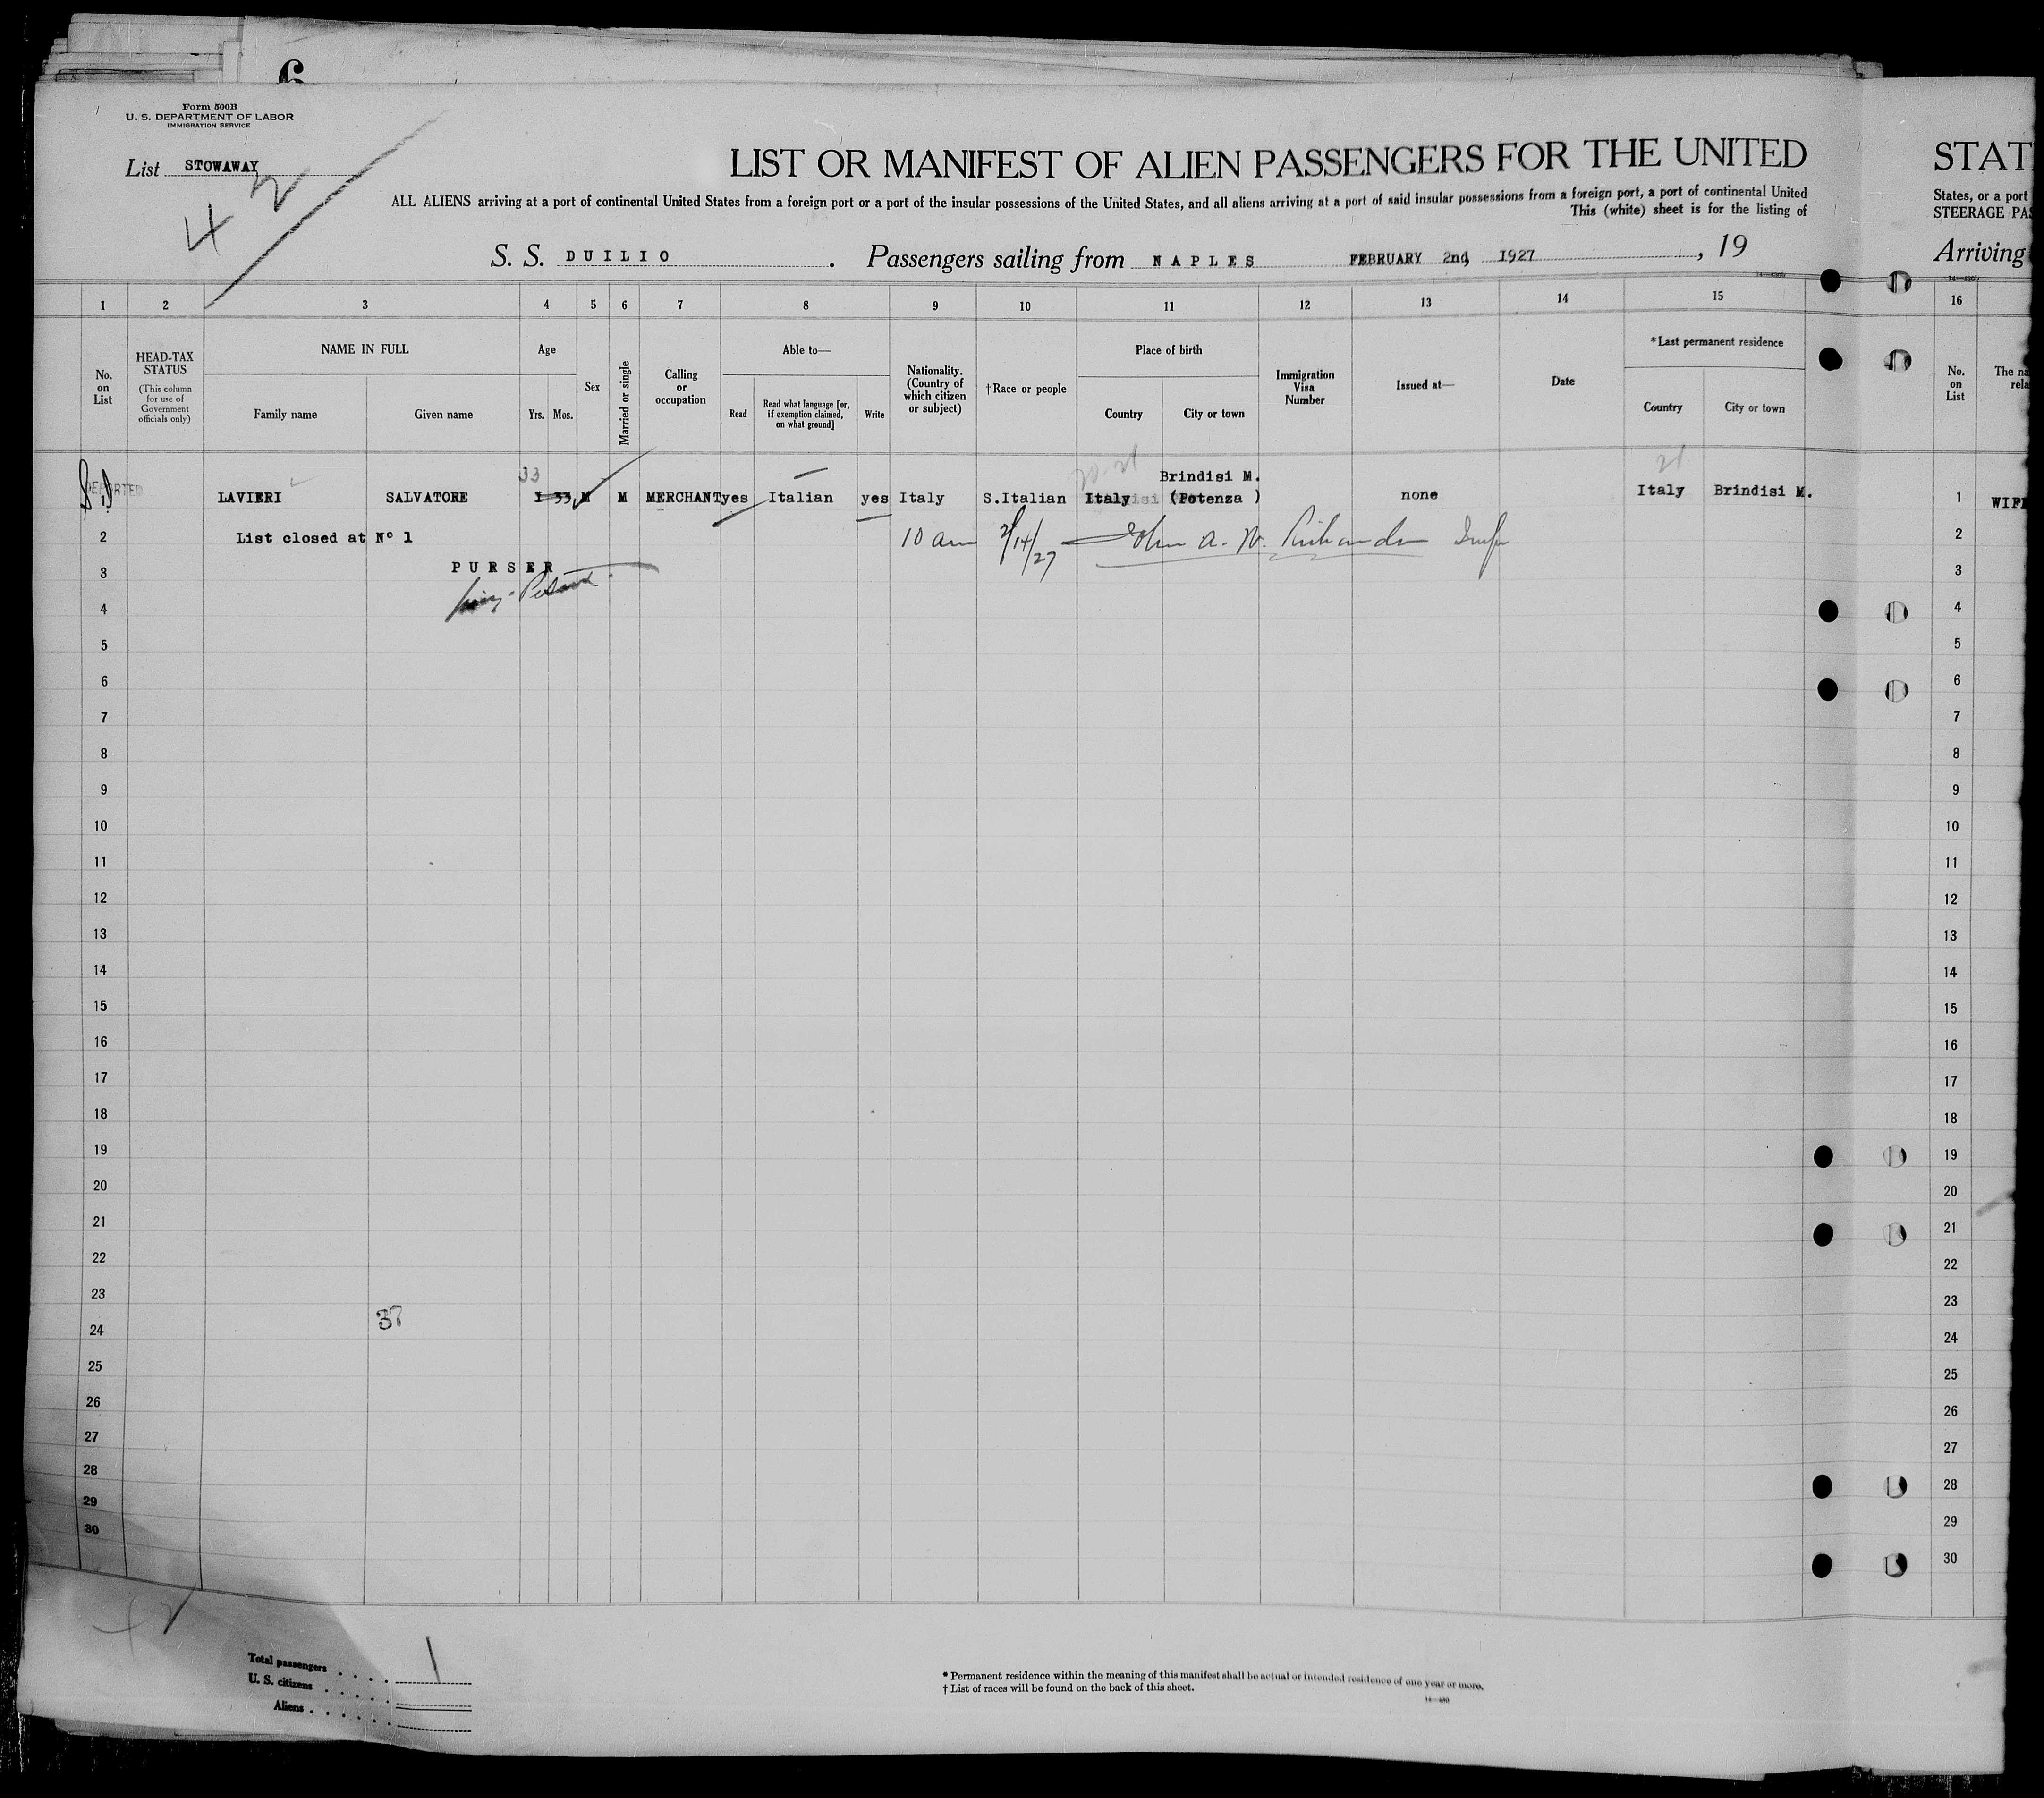 6
Form 500B
U. S. DEPARTMENT OF LABOR
IMMIGRATION SERVICE
List STOWAWAY
42
LIST OR MANIFEST OF ALIEN PASSENGERS FOR THE UNITED
ALL ALIENS arriving at a port of continental United States from a foreign port or a port of the insular possessions of the United States, and all aliens arriving at a port of said insular possessions from a foreign port, a port of continental United
This (white) sheet is for the listing of
S. S. DUILIO. Passengers sailing from NAPLES FEBRUARY 2nd, 1927, 19
STAT
States, or a port
STEERAGE PAS
Arriving
1 2 3 4 5 6 7 8 9 10 11 12 13 14 15 16
No. on List
HEAD-TAX STATUS
(This column for use of Government officials only)
NAME IN FULL
Family name Given name
Age
Yrs. Mos.
Sex
Married or single
Calling or occupation
Able to—
Read
Read what language [or, if exemption claimed, on what ground]
Write
Nationality. (Country of which citizen or subject)
†Race or people
Place of birth
Country City or town
Immigration Visa Number
Issued at—
Date
*Last permanent residence
Country City or town
No. on List
The na
rela
33 20-21 Brindisi M. 21
DEPORTED
1 LAVIERI SALVATORE 33 M M MERCHANT yes Italian yes Italy S.Italian Italy (Potenza ) none Italy Brindisi M. 1 WIF
2 List closed at Nº 1 10 am 2/14/27 John A. W. Richards 2
3 PURSER 3
4 4
5 5
6 6
7 7
8 8
9 9
10 10
11 11
12 12
13 13
14 14
15 15
16 16
17 17
18 18
19 19
20 20
21 21
22 22
23 23
37
24 24
25 25
26 26
27 27
28 28
29 29
30 30
Total passengers 1
U. S. citizens
Aliens
* Permanent residence within the meaning of this manifest shall be actual or intended residence of one year or more.
† List of races will be found on the back of this sheet.